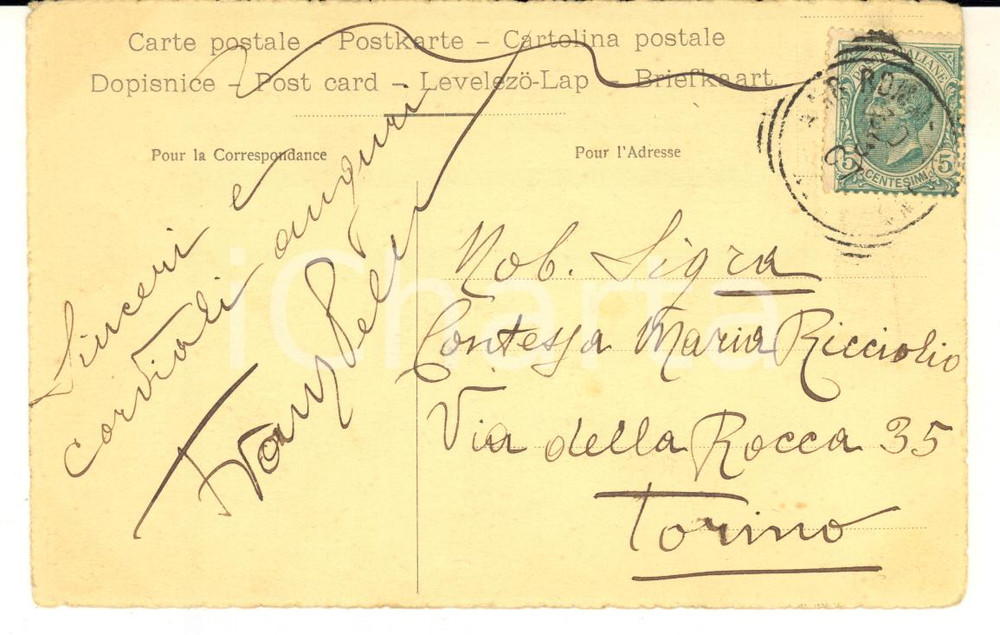 Carte postale – Postkarte – Cartolina postale
Dopisnice – Post card – Levelezö-Lap – Briefkaart
Pour la Correspondance
Pour l'Adresse
Sinceri e
cordiali auguri
Nob. Sigra
Contessa Maria Ricciolio
Via della Rocca 35
Torino
ROMA
5
5
CENTESIMI
iCharta